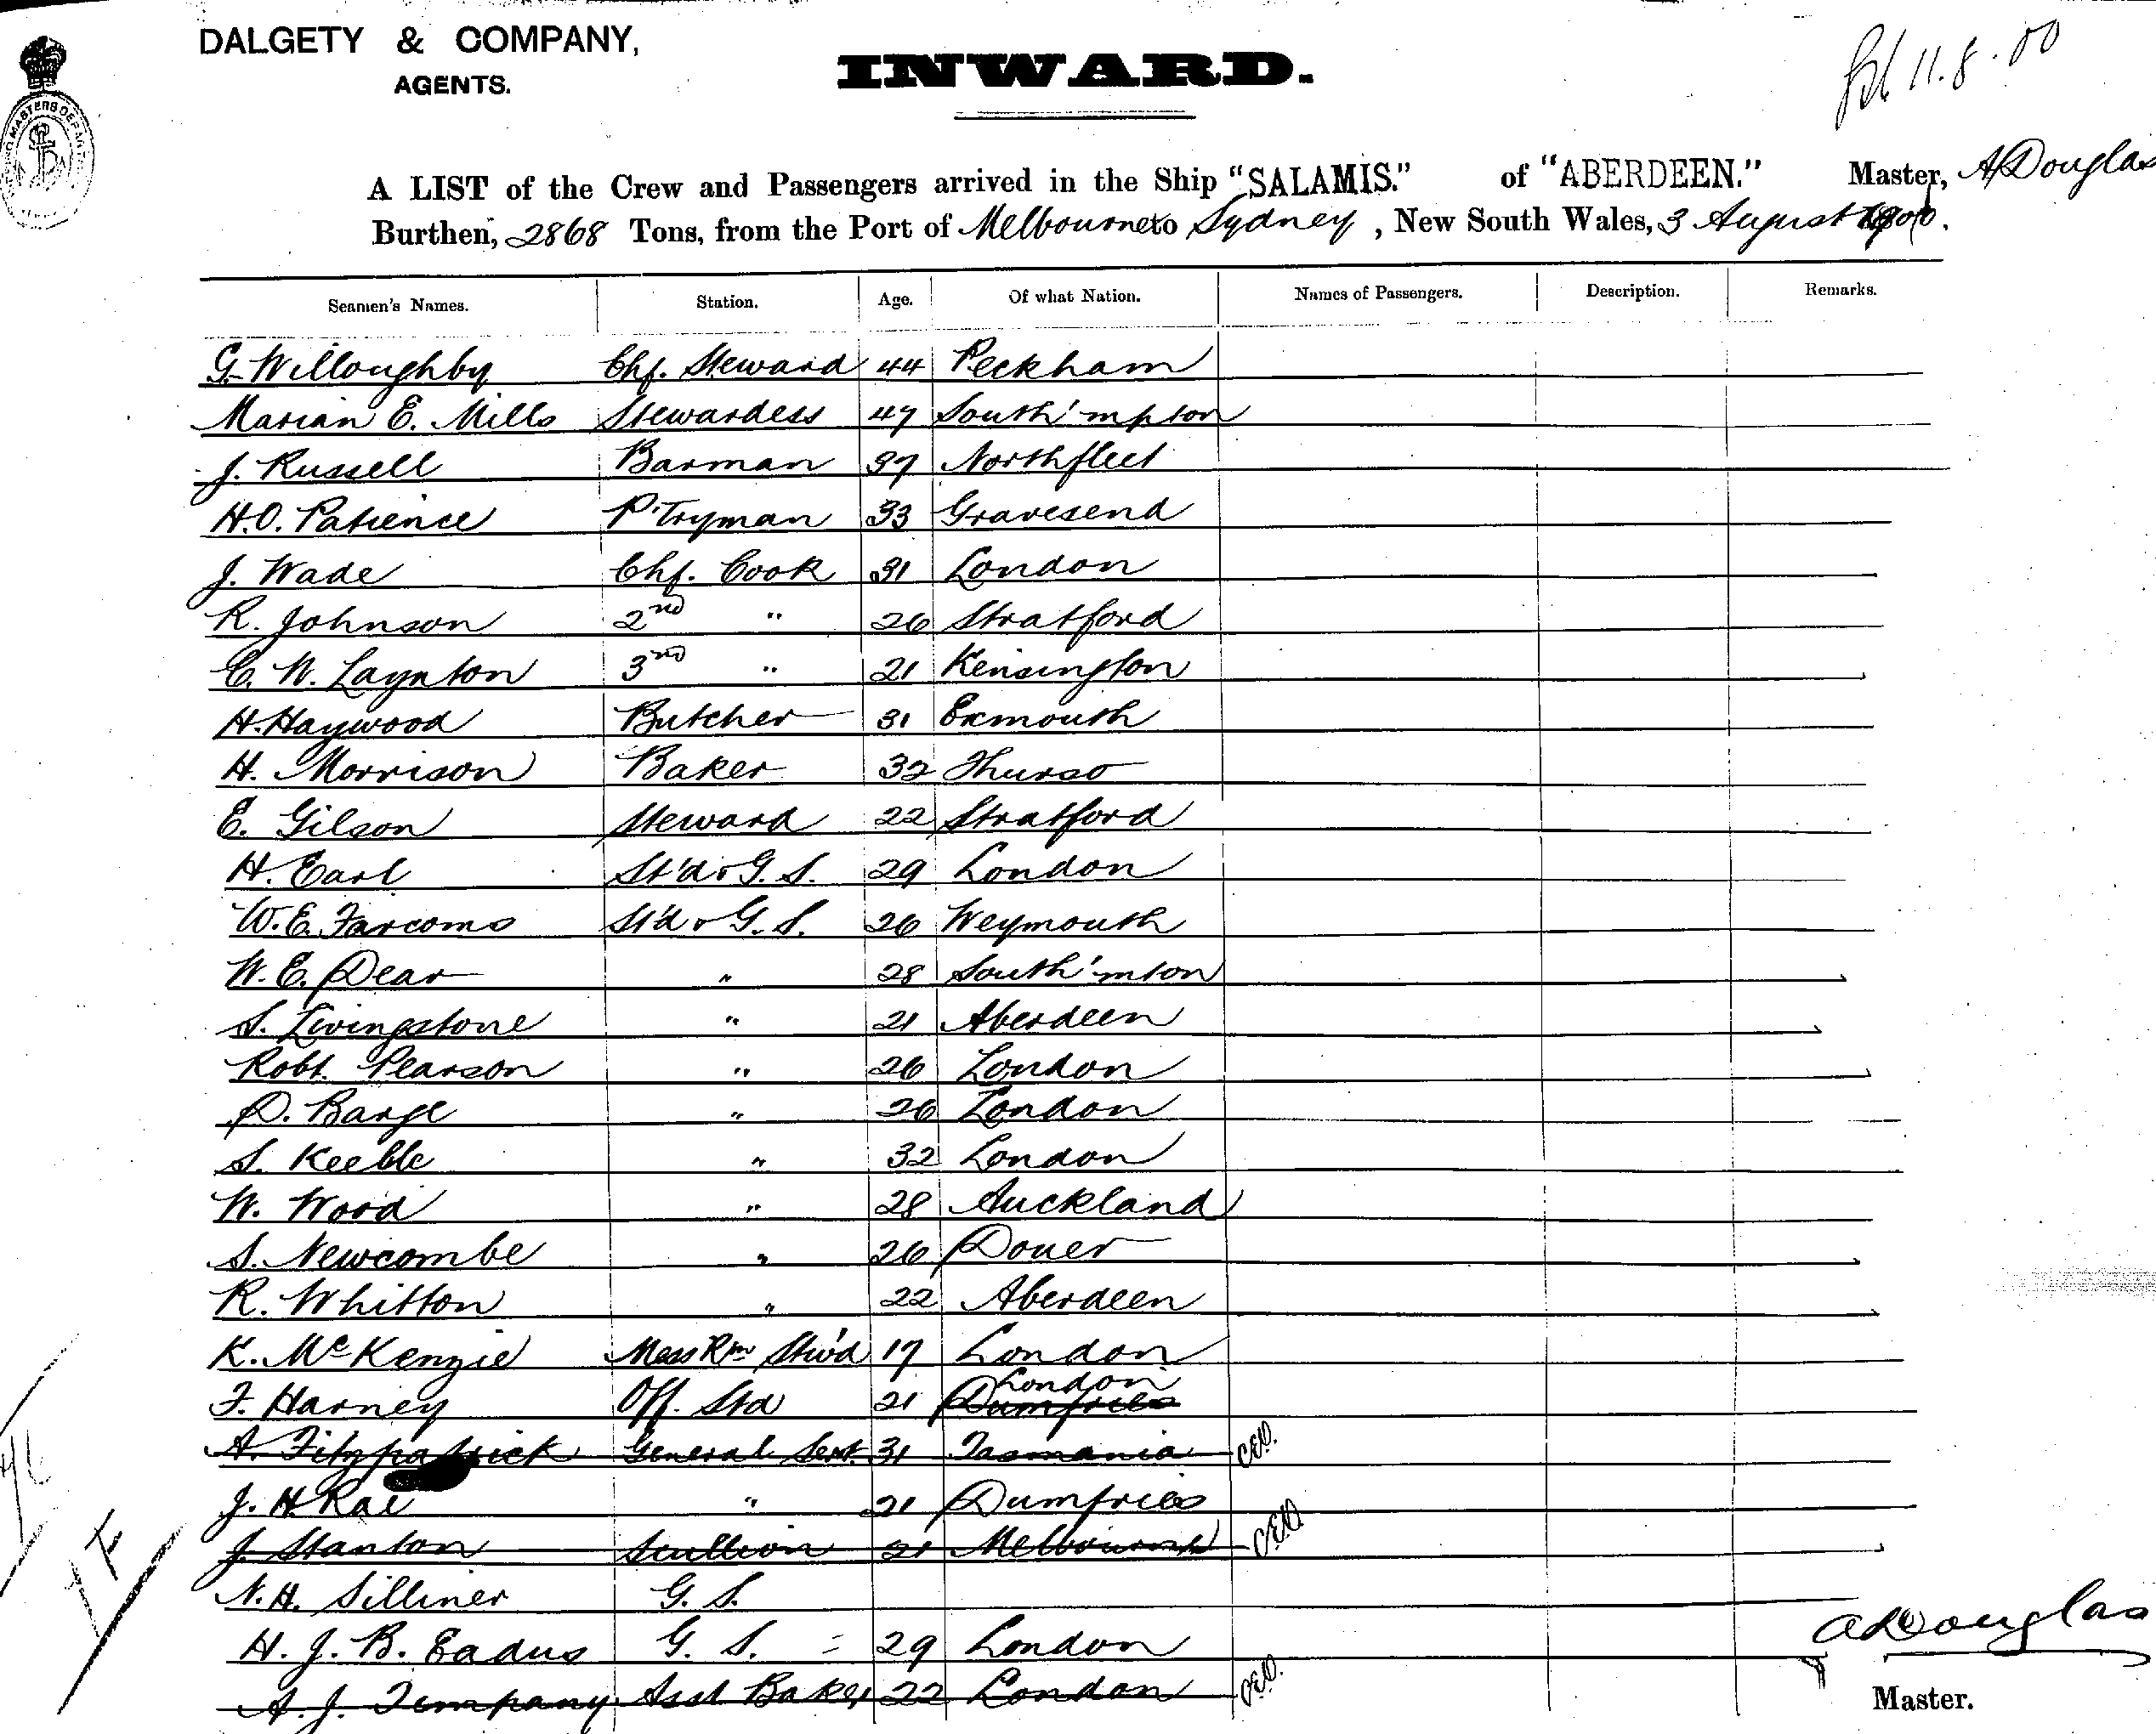 DALGETY & COMPANY,
AGENTS.
INWARD.
11.8.00
A LIST of the Crew and Passengers arrived in the Ship "SALAMIS." of "ABERDEEN." Master, A Douglas
Burthen, 2868 Tons, from the Port of Melbourne to Sydney, New South Wales, 3 August 1900.
Seamen's Names. Station. Age. Of what Nation. Names of Passengers. Description. Remarks.
G. Willoughby Chf. Steward 44 Peckham
Marian E. Mills Stewardess 47 South'mpton
J. Russell Barman 37 Northfleet
H.O. Patience P'Tryman 33 Gravesend
J. Wade Chf. Cook 31 London
R. Johnson 2nd " 26 Stratford
C. W. Laynton 3rd " 21 Kensington
H. Haywood Butcher 31 Exmouth
H. Morrison Baker 32 Thurso
E. Gilson Steward 22 Stratford
H. Earl St'd & G. S. 29 London
W. E. Farcoms St'd & G. S. 26 Weymouth
W. E. Dear " 28 South'mton
S. Livingstone " 21 Aberdeen
Robt. Pearson " 26 London
D. Barge " 26 London
S. Keeble " 32 London
W. Wood " 28 Auckland
S. Newcombe " 26 Dover
R. Whitton " 22 Aberdeen
K. McKenzie Mess Rm Stw'd 17 London
F. Harney Off. Std 21 London Dumfries
A. Fitzpatrick General Sert. 31 Tasmania
J. H. Rae " 21 Dumfries
J. Stanton Scullion 21 Melbourne
N. H. Silliner G. S.
H. J. B. Eadus G. S. 29 London
A Douglas
A. J. Tempany Asst Baker 22 London
Master.